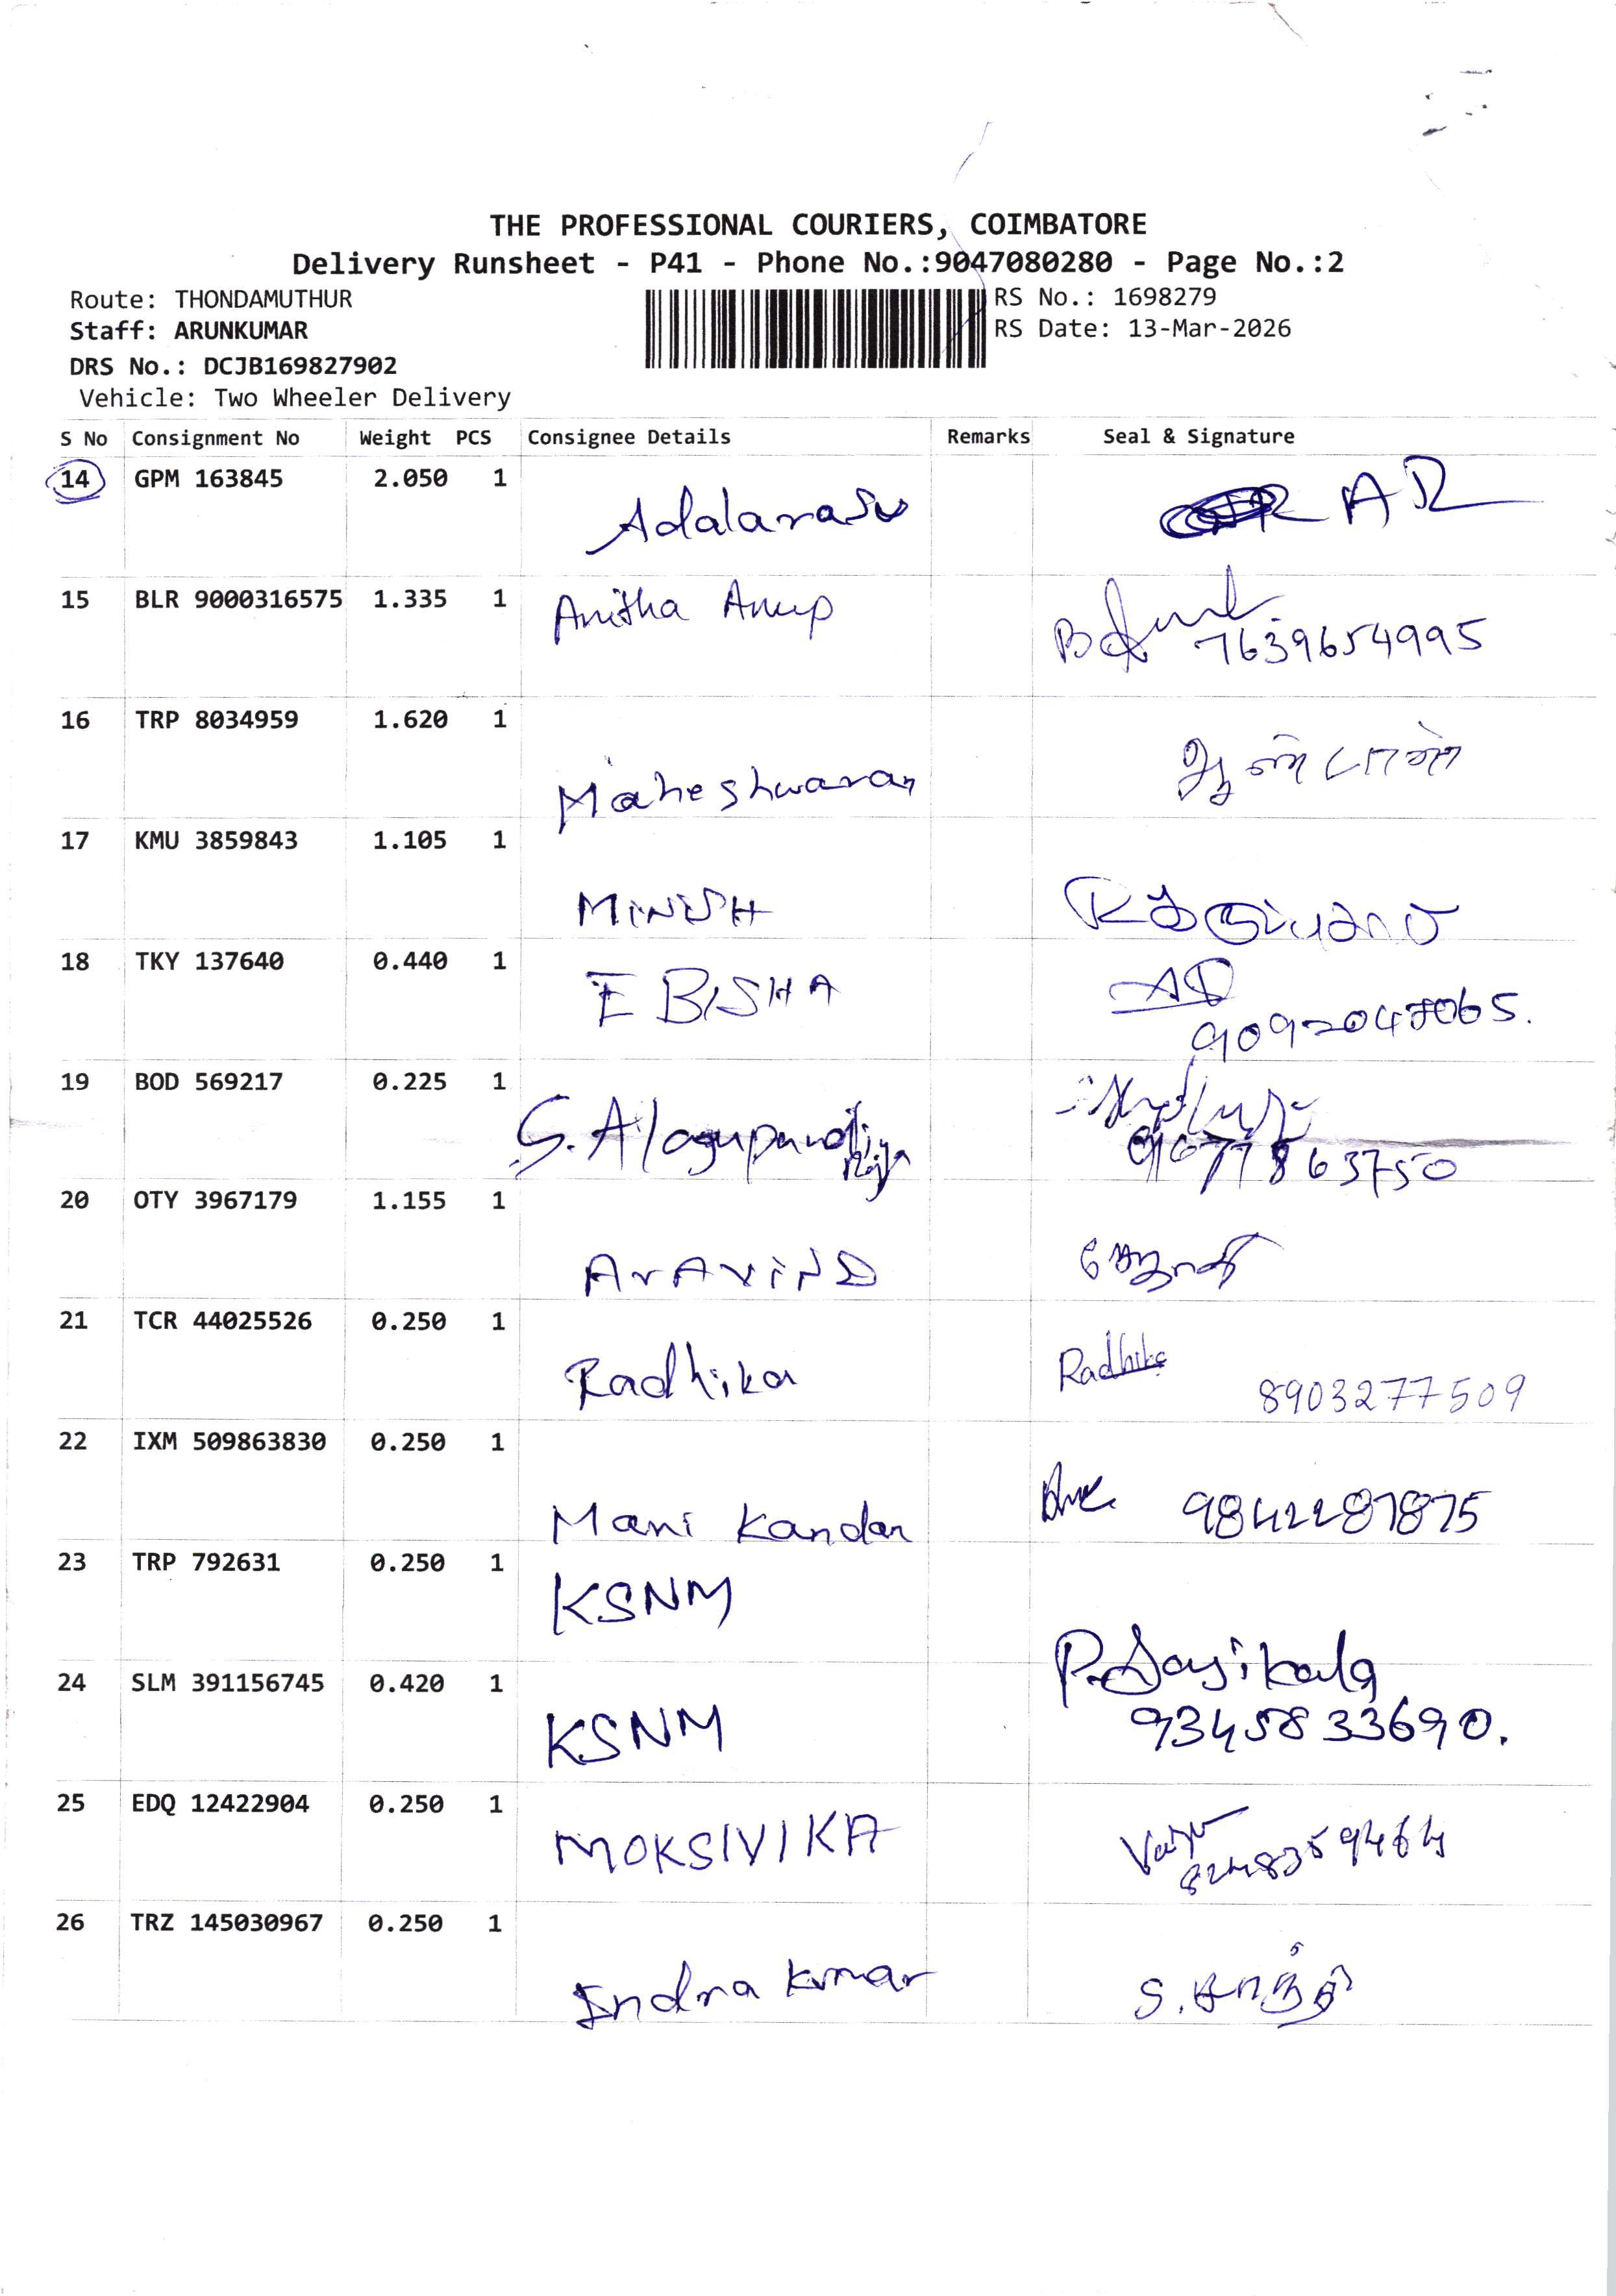 THE PROFESSIONAL COURIERS, COIMBATORE
Delivery Runsheet - P41 - Phone No.:9047080280 - Page No.:2
Route: THONDAMUTHUR
RS No.: 1698279
Staff: ARUNKUMAR
RS Date: 13-Mar-2026
DRS No.: DCJB169827902
Vehicle: Two Wheeler Delivery
S No Consignment No Weight PCS Consignee Details Remarks Seal & Signature
14 GPM 163845 2.050 1 Adalarasu AR
15 BLR 9000316575 1.335 1 Anitha Anup
7639654995
16 TRP 8034959 1.620 1
Maheshwaran
17 KMU 3859843 1.105 1
MINISH
18 TKY 137640 0.440 1 EBISHA
19 BOD 569217 0.225 1
S. Alagupandi
20 OTY 3967179 1.155 1
ArAViND ஜோதி
21 TCR 44025526 0.250 1
Radhika Radhika
8903277509
22 IXM 509863830 0.250 1
Mani kandan 9842287875
23 TRP 792631 0.250 1
KSNM
P. Sasikala
24 SLM 391156745 0.420 1
KSNM 9345833690.
25 EDQ 12422904 0.250 1
MOKSIVIKA
26 TRZ 145030967 0.250 1
Indra kumar